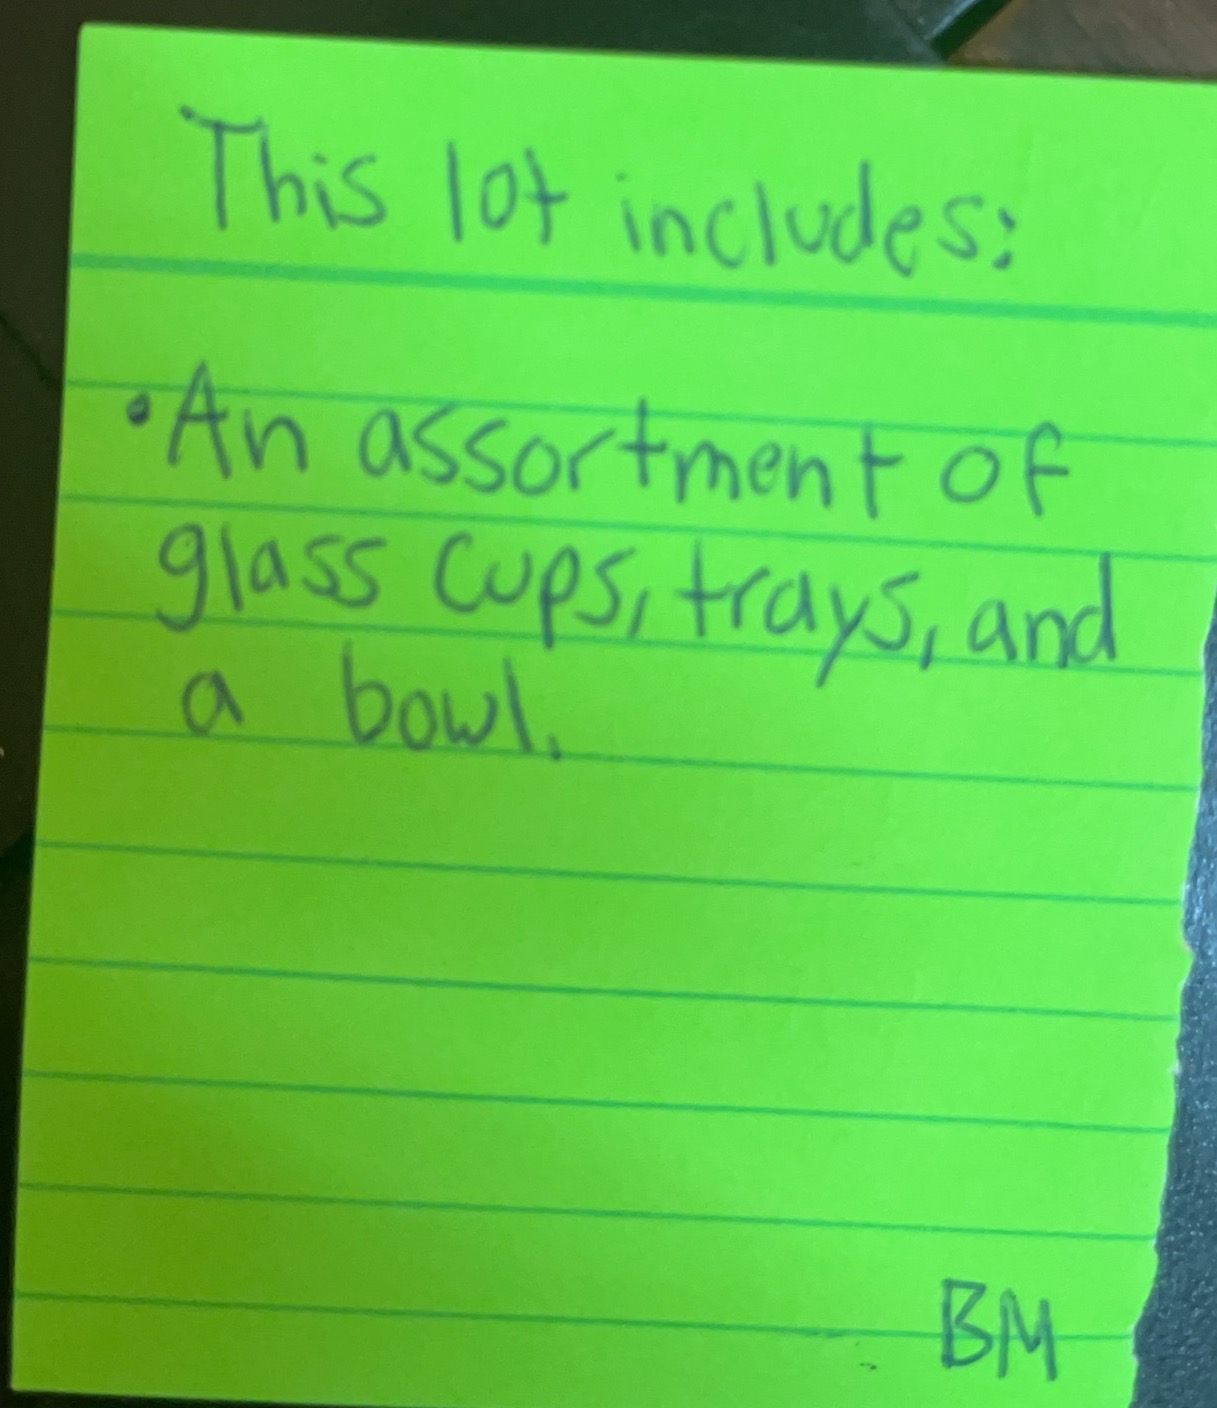 This lot includes:
•An assortment of
glass cups, trays, and
a bowl.
BM